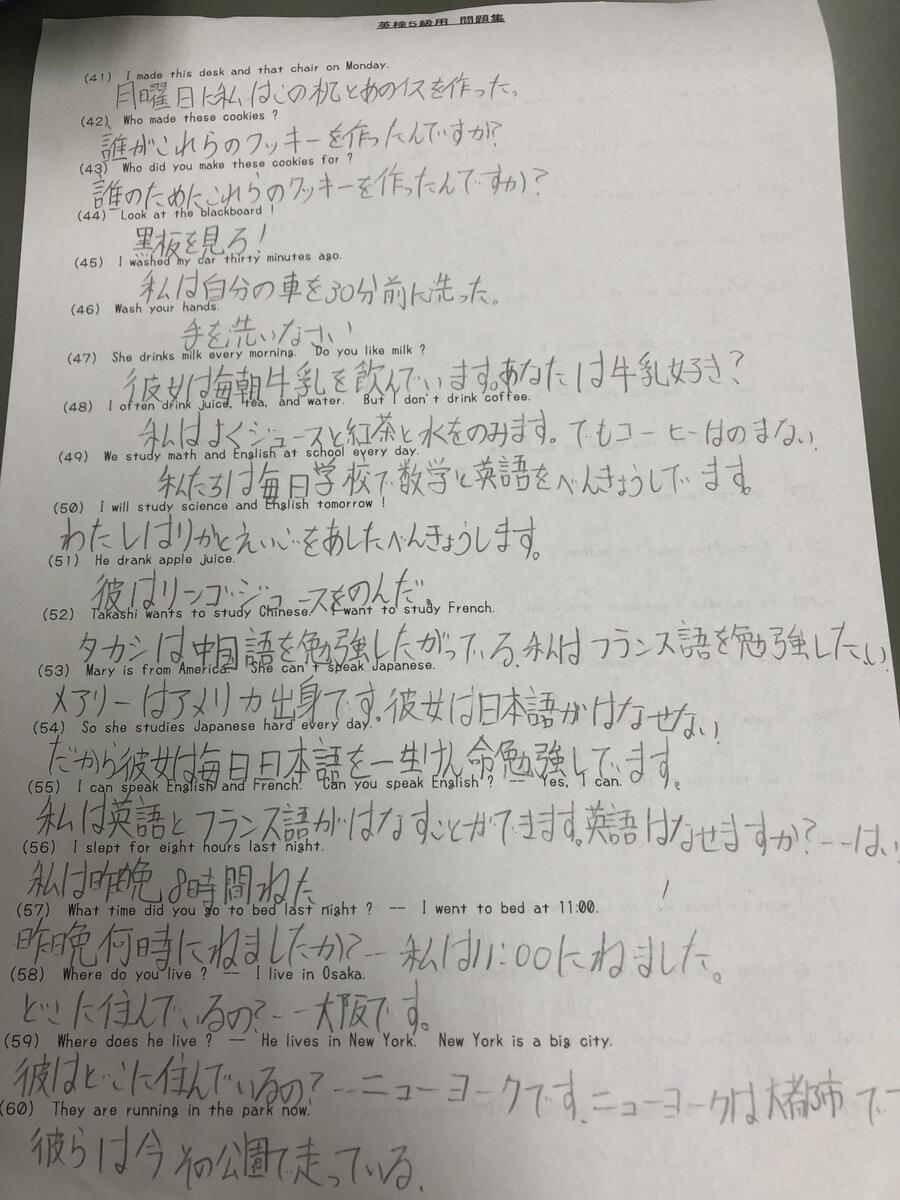 英検5級用 問題集
(41) I made this desk and that chair on Monday.
月曜日に私はこの机とあのイスを作った。
(42) Who made these cookies ?
誰がこれらのクッキーを作ったんですか?
(43) Who did you make these cookies for ?
誰のためにこれらのクッキーを作ったんですか?
(44) Look at the blackboard !
黒板を見ろ!
(45) I washed my car thirty minutes ago.
私は自分の車を30分前に洗った。
(46) Wash your hands.
手を洗いなさい
(47) She drinks milk every morning. Do you like milk ?
彼女は毎朝牛乳を飲んでいます。あなたは牛乳好き?
(48) I often drink juice, tea, and water. But I don't drink coffee.
私はよくジュースと紅茶と水をのみます。でもコーヒーはのまない
(49) We study math and English at school every day.
私たちは毎日学校で数学と英語をべんきょうしてます。
(50) I will study science and English tomorrow !
わたしはりかとえいごをあしたべんきょうします。
(51) He drank apple juice.
彼はリンゴジュースをのんだ。
(52) Takashi wants to study Chinese. I want to study French.
タカシは中国語を勉強したがっている。私はフランス語を勉強したい
(53) Mary is from America. She can't speak Japanese.
メアリーはアメリカ出身です。彼女は日本語がはなせない
(54) So she studies Japanese hard every day.
だから彼女は毎日日本語を一生けん命勉強しています。
(55) I can speak English and French. Can you speak English ? -- Yes, I can.
私は英語とフランス語がはなすことができます。英語はなせますか?--はい
(56) I slept for eight hours last night.
私は昨晩8時間ねた
(57) What time did you go to bed last night ? -- I went to bed at 11:00.
昨晩何時にねましたか?--私は11:00にねました。
(58) Where do you live ? -- I live in Osaka.
どこに住んでいるの?--大阪です。
(59) Where does he live ? -- He lives in New York. New York is a big city.
彼はどこに住んでいるの?--ニューヨークです。ニューヨークは大都市で
(60) They are running in the park now.
彼らは今その公園で走っている。